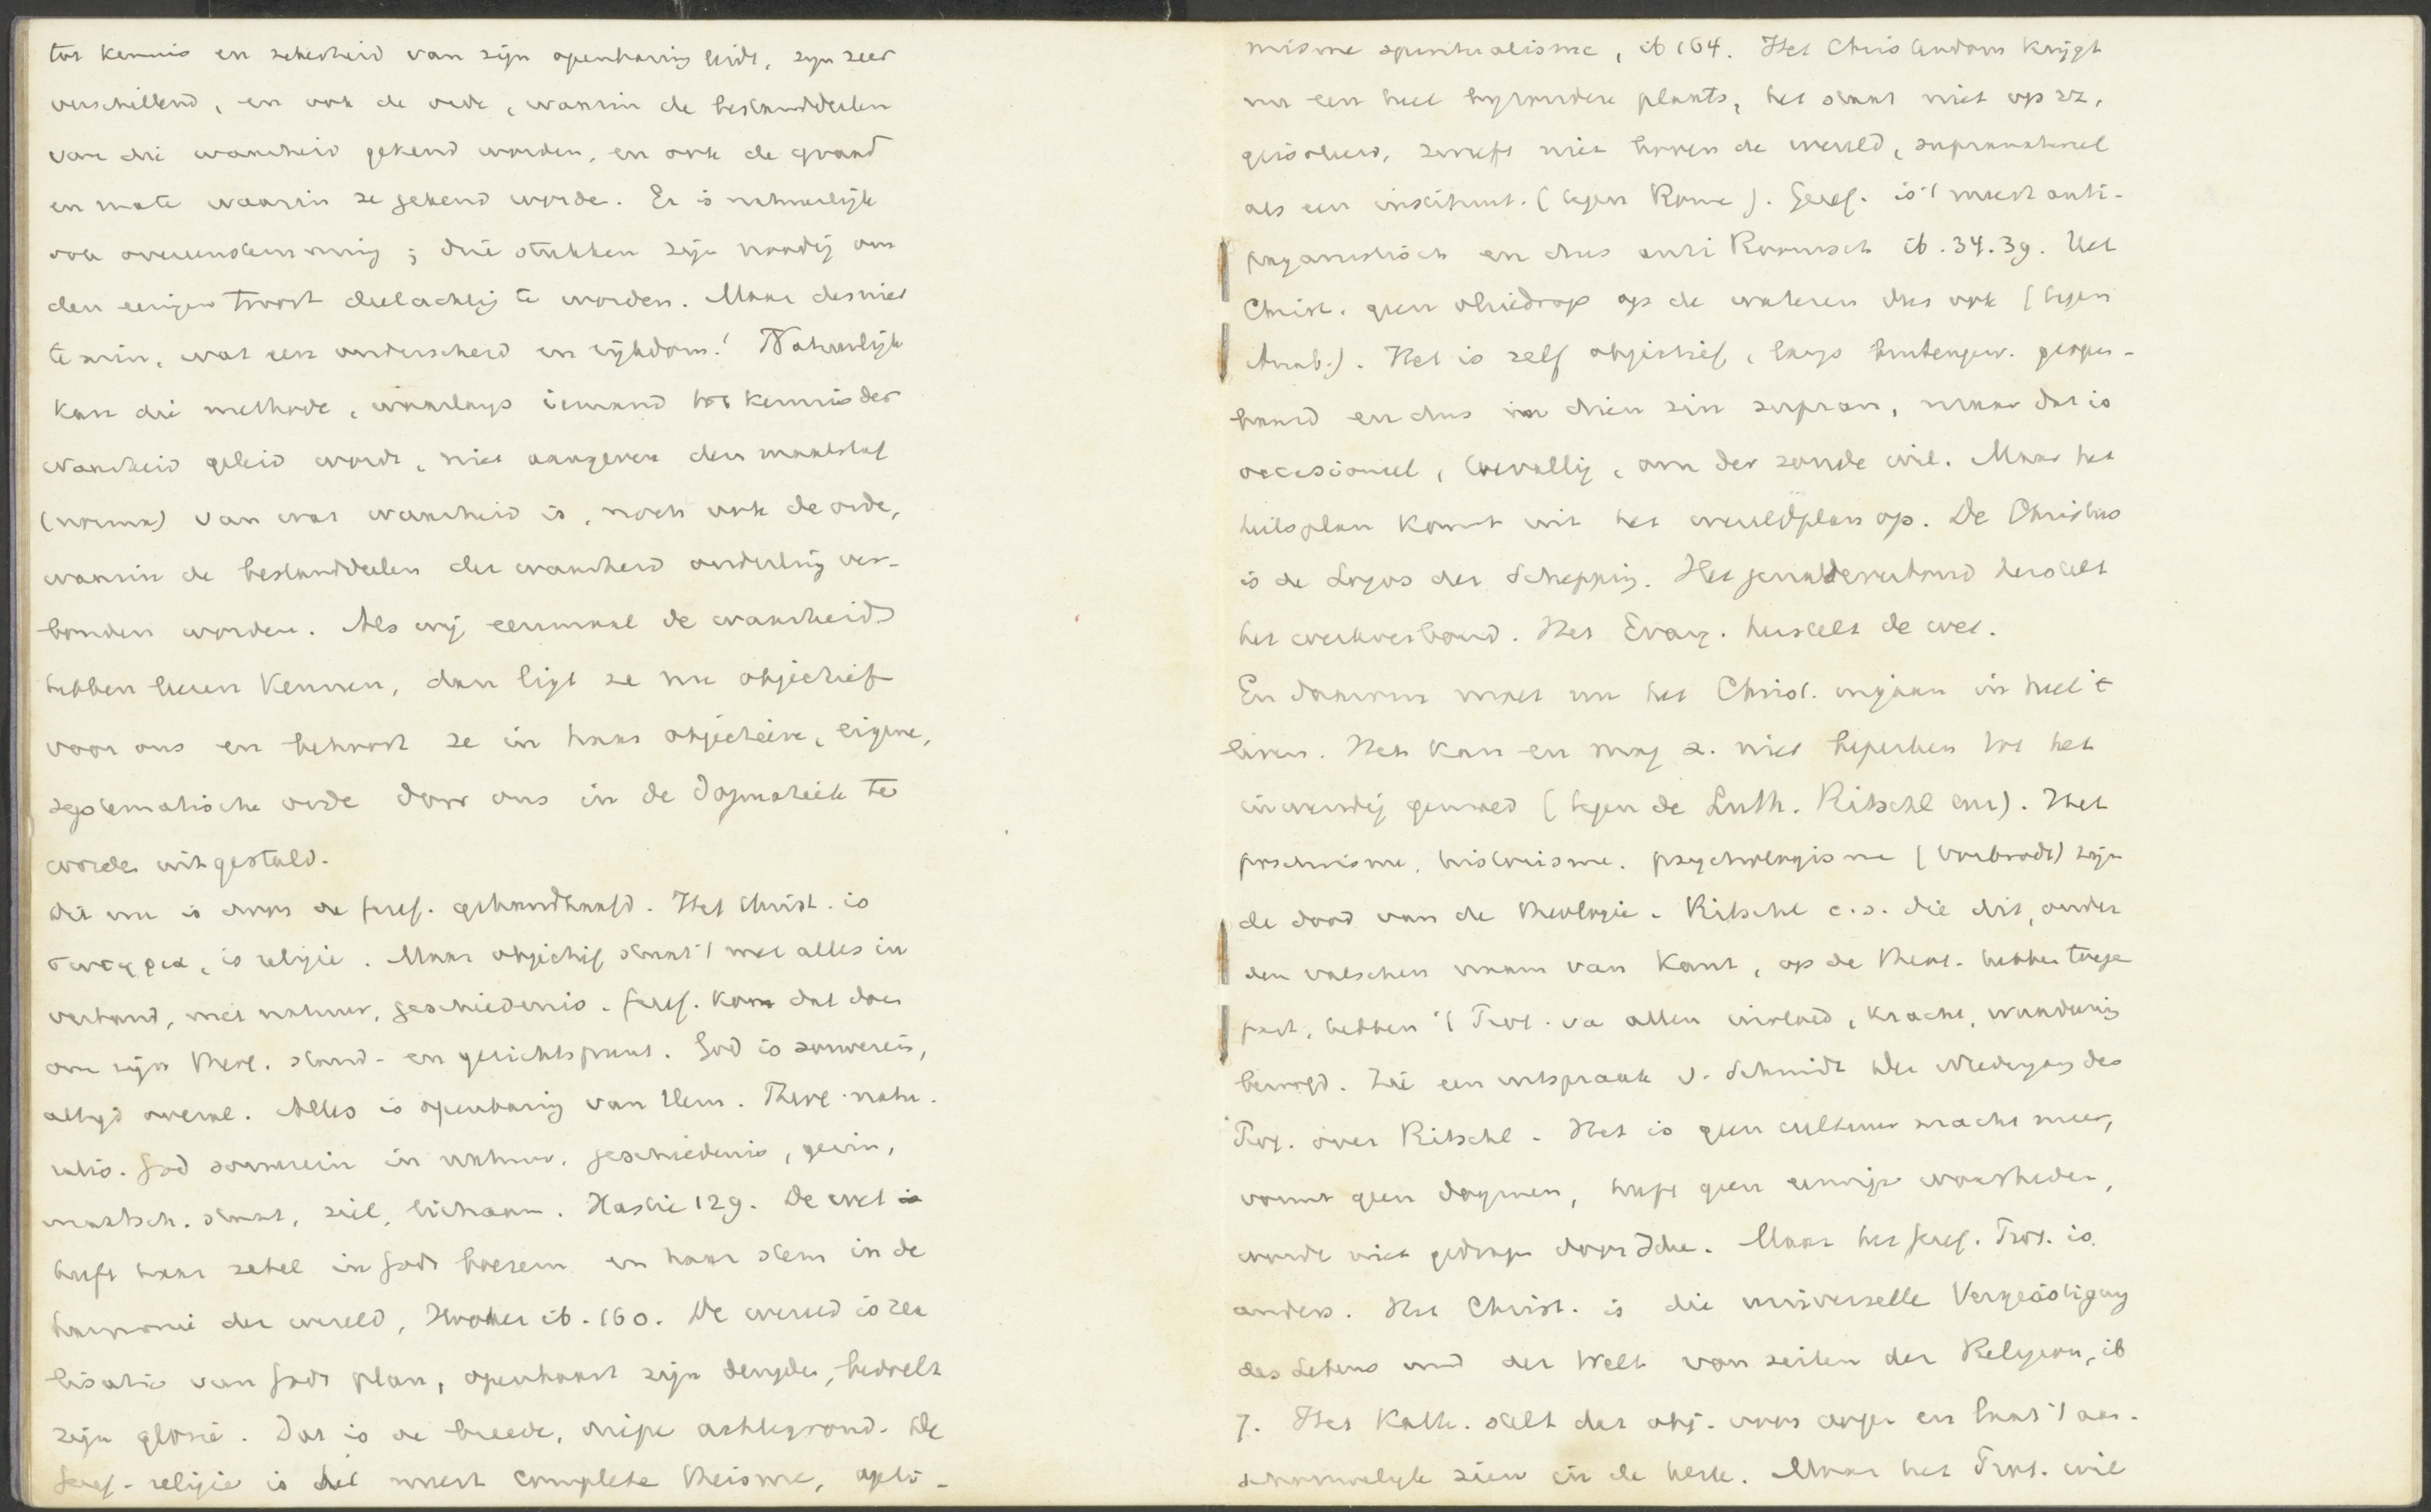 tot kennis en zekerheid van zijn openbaring leidt, zyn zeer
verschillend, en ook de orde, waarin de bestanddeelen
van die waarheid gekend worden, en ook de graad
en mate waarin ze gekend worde. Er is natuurlijk
ook overeenstemming; drie stukken zijn noodig om
den eenigen troost deelachtig te worden. Maar desniet
te min, wat een onderscheid en rijkdom! Natuurlijk
kan die methode, waarlangs iemand tot kennis der
waarheid geleid wordt, niet aangeven den maatstaf
(norma) van wat waarheid is, noch ook de orde,
waarin de bestanddeelen der waarheid onderling ver-
bonden worden. Als wij eenmaal de waarheid
hebben leeren kennen, dan ligt ze nu objectief
voor ons en behoort ze in haar objectieve, eigene,
systematische orde door ons in de Dogmatiek te
worden uitgestald.
Dit nu is door de Geref. gehandhaafd. Het Christ. is
is religie. Maar objectief staat 't met alles in
verband, met natuur, geschiedenis. Geref. kom dat door
om zijn theol. stand- en gezichtspunt. God is souverein,
altijd overal. Alles is openbaring van Hem. Theol. natu-
ralis. God souverein in natuur, geschiedenis, gezin,
maatsch. staat, ziel, lichaam. Hastie 129. De wet is
heeft haar zetel in Gods boezem en haar stem in de
harmonie der wereld, Hooker ib. 160. De wereld is rea
lisatie van Gods plan, openbaart zijn deugden, bedoelt
zijn glorie. Dat is de breede, diepe achtergrond. De
Geref. religie is het meest complete theisme, opti-
misme spiritualisme, ib 164. Het Christendom krijgt
nu een heel byzondere plaats, het staat niet op zz,
geisoleerd, zweeft niet boven de wereld, supranatureel
als een instituut. (tegen Rome). Geref. is 't meest anti-
paganistisch en dus anti Roomsch ib. 34.39. Het
Christ. geen oliedrop op de wateren dus ook (tegen
Anab.). Het is zelf objectief, langs buitengew. geopen-
baard en dus in dien zin supran, maar dat is
occasioneel, toevallig, om der zonde wil. Maar het
heilsplan komt uit het wereldplan op. De Christus
is de Logos der Schepping. Het genadeverbond herstelt
het werkverbond. Het Evang. herstelt de wet.
En daarom moet nu het Christ. ingaan in heel 't
leven. Het kan en mag z. niet beperken tot het
inwendig gemoed (tegen de Luth. Ritschl enz). Het
historisme, psychologisme (Vorbrodt) zijn
de dood van de theologie. Ritschl c.s. die dit, onder
den valschen naam van Kant, op de theol. hebben toege
past, hebben 't Prot. va allen invloed, kracht, waardering
beroofd. Zie een uitspraak v. Schmidt Der Niedergang des
Prot. over Ritschl. Het is geen cultuur macht meer,
vormt geen dogmen, heeft geen eeuwige waarheden,
wordt niet gedragen door Idee. Maar het Geref. Prot. is
anders. Het Christ. is die universelle Vergeistigung
des Lebens und der Welt von seiten der Religion, ib
7. Het Kath. stelt dat obj. voor oogen en laat 't aan-
schouwelyk zien in de kerk. Maar het Prot. wil